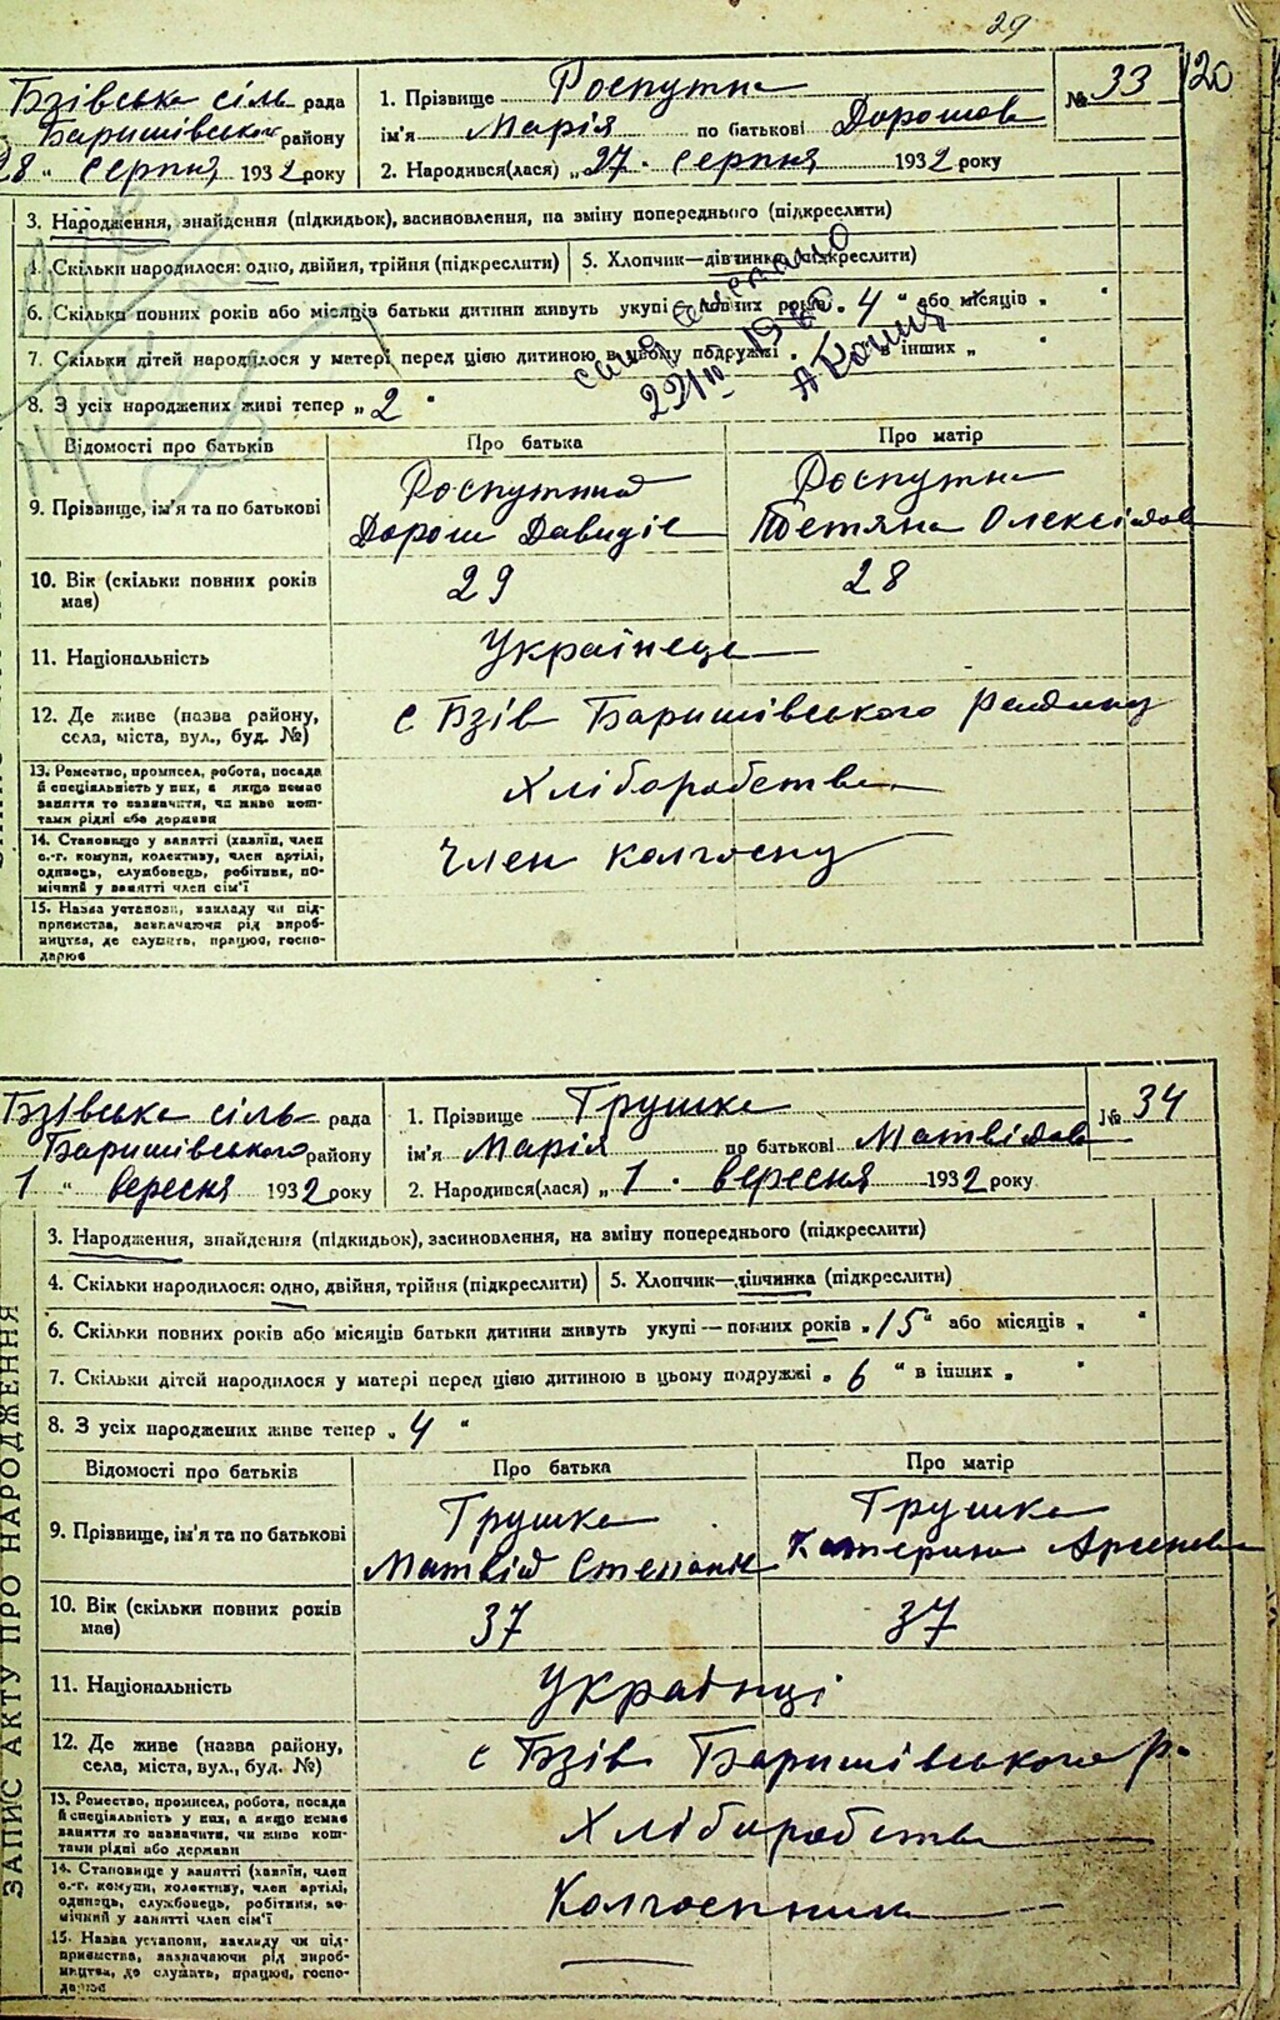 29
Бзівська сіль рада
Баришівського району
28 " серпня 1932 року
1. Прізвище Роспутня
ім'я Марія по батькові Дорошов
2. Народився(лася) „ 27 " серпня 1932 року
№ 33
120
3. Народження, знайдення (підкидьок), засиновлення, на зміну попереднього (підкреслити)
4. Скільки народилося: одно, двійня, трійня (підкреслити) 5. Хлопчик—дівчинка (підкреслити)
6. Скільки повних років або місяців батьки дитини живуть укупі — повних років „ 4 " або місяців „ "
7. Скільки дітей народилося у матері перед цією дитиною в цьому подружжі „ " в інших „ "
8. З усіх народжених живі тепер „ 2 "
Відомості про батьків Про батька Про матір
9. Прізвище, ім'я та по батькові
Роспутній
Дорош Давидів
Роспутня
Тетяна Олексіїв
10. Вік (скільки повних років
має)
29 28
11. Національність Українець
12. Де живе (назва району,
села, міста, вул., буд. №)
с Бзів Баришівського району
13. Ремество, промисел, робота, посада
й спеціяльність у них, а якщо немає
заняття то зазначити, чи живе кош-
тами рідні або держави
Хліборобство
14. Становище у занятті (хазяїн, член
с.-г. комуни, колективу, член артілі,
одинець, службовець, робітник, по-
мічний у занятті член сім'ї
Член колгоспу
15. Назва установи, закладу чи під-
приємства, зазначаючи рід вироб-
ництва, де служить, працює, госпо-
дарює
Бзівська сіль рада
Баришівського району
1 " вересня 1932 року
1. Прізвище Трушка
ім'я Марія по батькові Матвіївна
2. Народився(лася) „ 1 " вересня 1932 року
№ 34
3. Народження, знайдення (підкидьок), засиновлення, на зміну попереднього (підкреслити)
4. Скільки народилося: одно, двійня, трійня (підкреслити) 5. Хлопчик—дівчинка (підкреслити)
6. Скільки повних років або місяців батьки дитини живуть укупі — повних років „ 15 " або місяців „ "
7. Скільки дітей народилося у матері перед цією дитиною в цьому подружжі „ 6 " в інших „ "
8. З усіх народжених живе тепер „ 4 "
Відомості про батьків Про батька Про матір
9. Прізвище, ім'я та по батькові
Трушка
Матвій Степанів
Трушка
Катерина Арсенів
10. Вік (скільки повних років
має)
37 37
11. Національність Українці
12. Де живе (назва району,
села, міста, вул., буд. №)
с Бзів Баришівського р.
13. Ремество, промисел, робота, посада
й спеціяльність у них, а якщо немає
заняття то зазначити, чи живе кош-
тами рідні або держави
Хліборобство
14. Становище у занятті (хазяїн, член
с.-г. комуни, колективу, член артілі,
одинець, службовець, робітник, по-
мічний у занятті член сім'ї
Колгоспник
15. Назва установи, закладу чи під-
приємства, зазначаючи рід вироб-
ництва, де служить, працює, госпо-
дарює
ЗАПИС АКТУ ПРО НАРОДЖЕННЯ